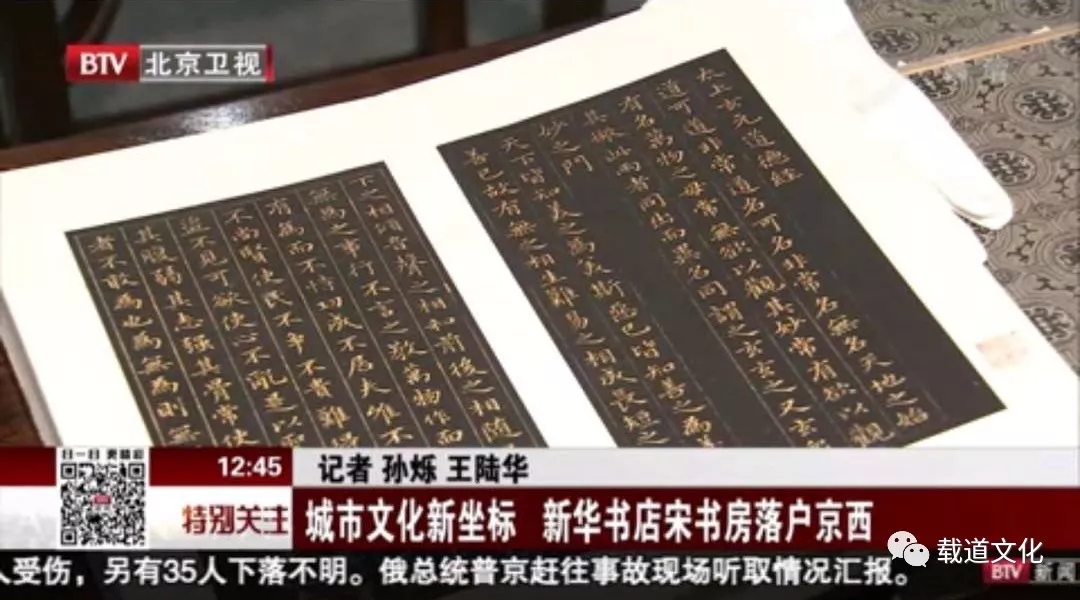 BTV 北京卫视
太上玄元道德經
道可道非常道名可名非常名無名天地之始
有名萬物之母常無欲以觀其妙常有欲以觀
其徼此兩者同出而異名同謂之玄玄之又玄
妙之門
天下皆知美之為美斯惡已皆知善之為
善已故有無之相生難易之相成長短之
下之相傾音聲之相和前後之相隨
無為之事行不言之教萬物作而
有為而不恃功成不居夫惟不
不尚賢使民不爭不貴難得
盜不見可欲使心不亂是以
其腹弱其志强其骨常使
者不敢為也為無為則無
日一日 更精彩
12:45
记者 孙烁 王陆华
特别关注
城市文化新坐标 新华书店宋书房落户京西
载道文化
人受伤，另有35人下落不明。俄总统普京赶往事故现场听取情况汇报。
BTV 新闻